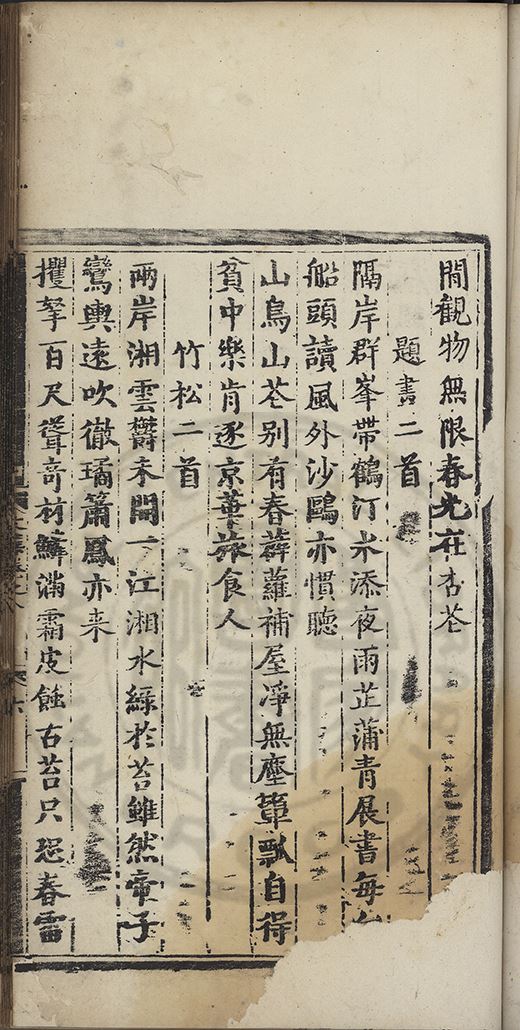 閒觀物無限春光在杏花
題畫二首
隔岸群峯帶鶴汀水添夜雨芷蒲青展書每
船頭讀風外沙鷗亦慣聽
山鳥山花别有春薜蘿補屋凈無塵簞瓢自得
貧中樂肯逐京華旅食人
竹松二首
兩岸湘雲欝未開一江湘水綠於苔雖然帝子
鸞輿遠吹徹璚簫鳳亦来
攫拏百尺聳奇材鱗滿霜皮蝕古苔只恐春雷